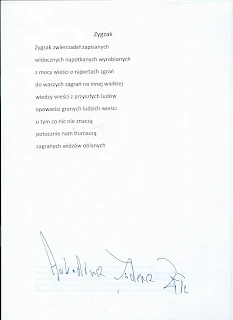 Zygzak
Zygzak zwierciadeł zapisanych
widocznych napotkanych wyroblonych
z mocy wieści o raportach zgrań
do waszych zagrań na innej wielkiej
wiedzy wieści z przyszłych ludów
opowieści granych ludzich wieści
o tym co nic nie znaczą
potocznie nam tłumaczą
zagranych widzów oblanych